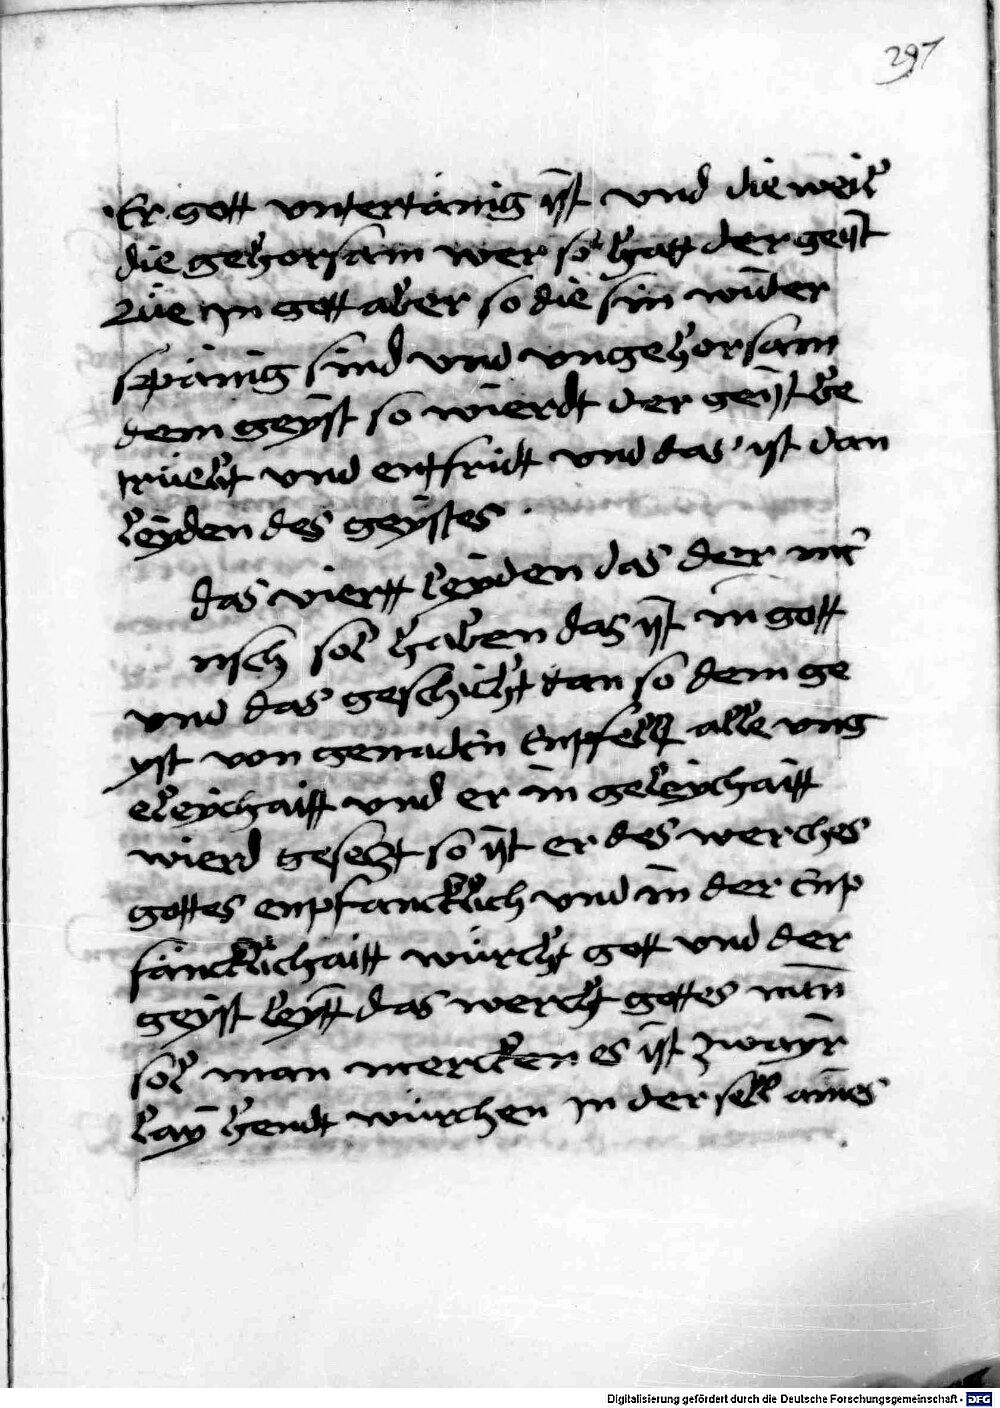 297
Er gott vntertänig ÿst vnd die weil
die gehorsam wer so hatt der geÿst
Züe in gott aber so die sin wider
spänig sind vnd vngehorsam
dem geÿst so wierdt der geÿst be
trüebt vnd entfridt vnd das ist dan
leÿden des geÿstes
das viertt leÿden das der me
nsch sol haben das ÿst in gott
vnd das geschicht dan so dem ge
yst von genaden Enpfellt alle vng
eleÿchaitt vnd er in geleÿchaitt
wierd geseczt so ÿst er des werches
gottes enpfancklich vnd in der Enp
fäncklichaitt würcht gott vnd der
geÿst leÿtt das wercht gottes nun
sol man mercken es ÿst zwaÿr
laÿ hendt würchen in der sell aines
Digitalisierung gefördert durch die Deutsche Forschungsgemeinschaft - DFG